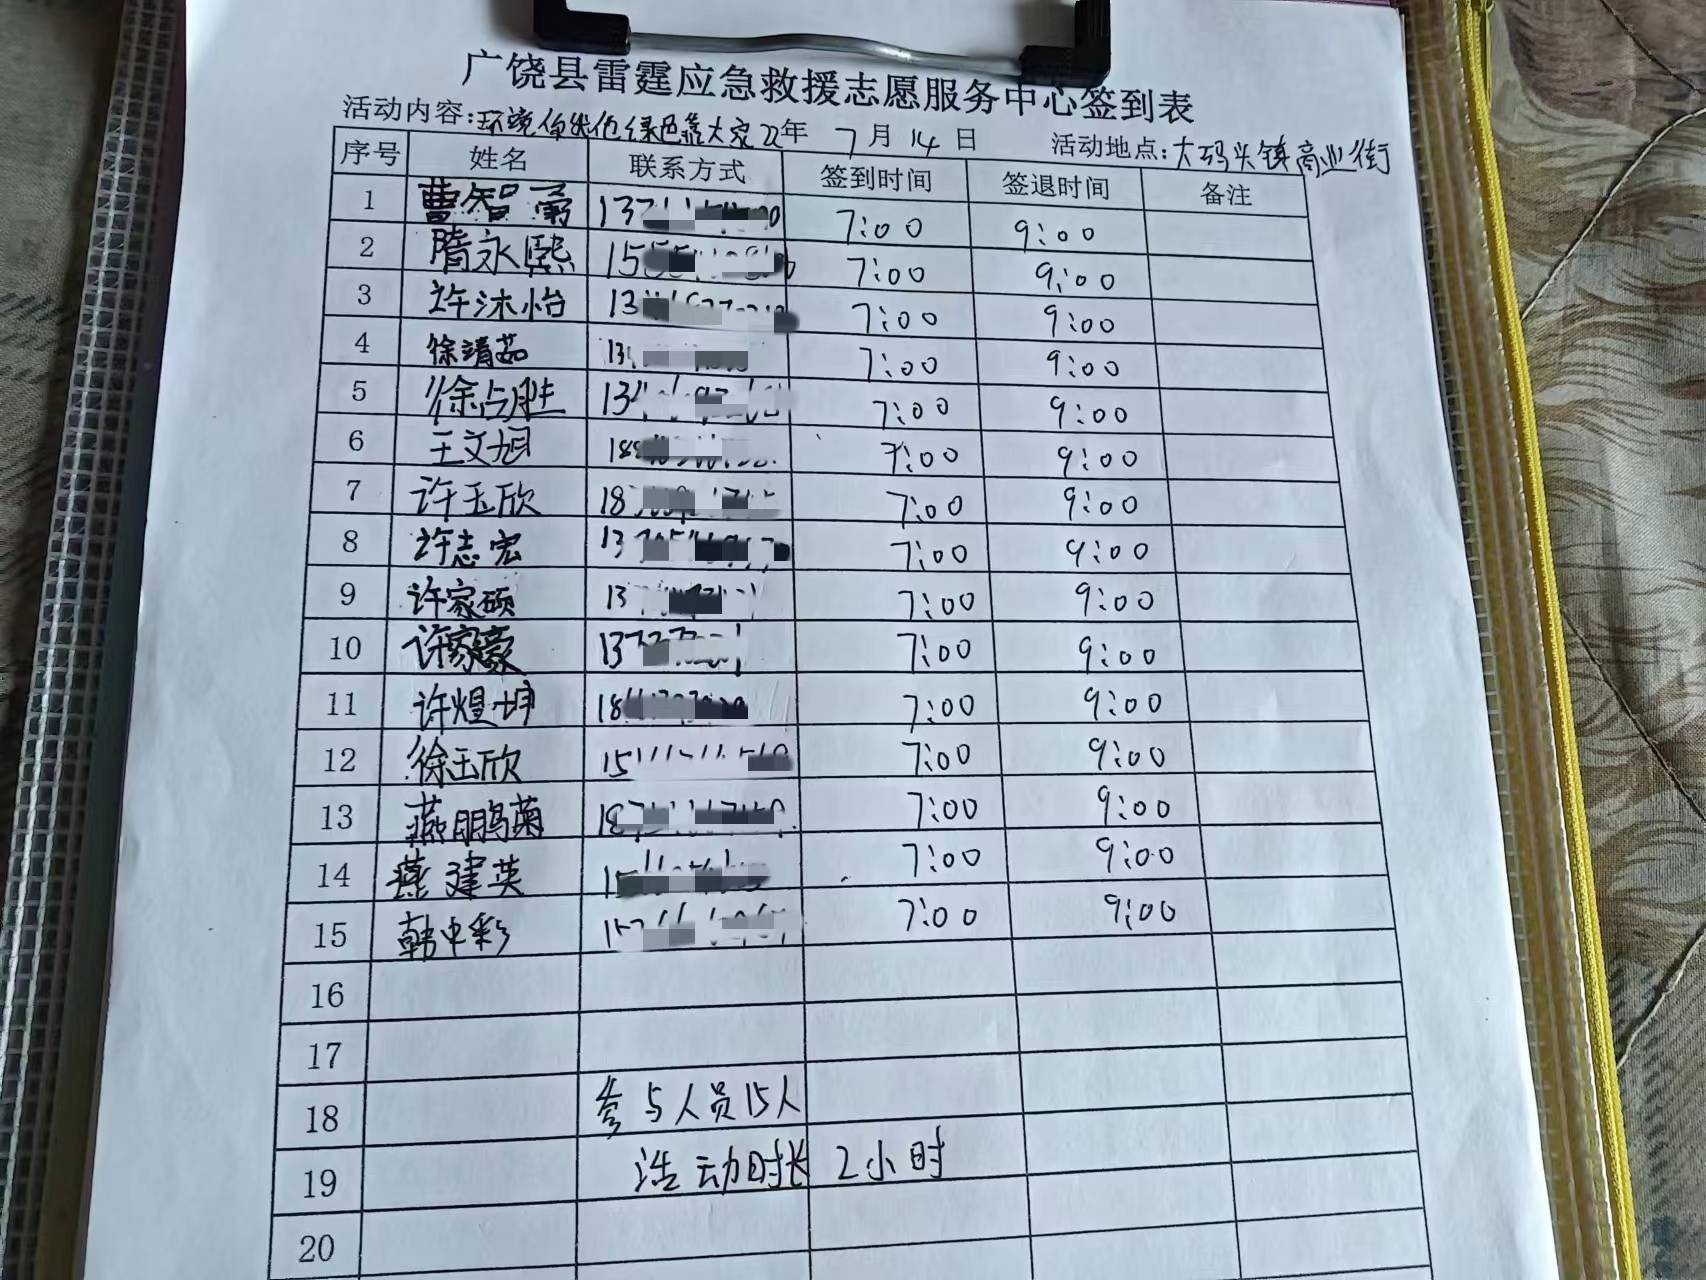 广饶县雷霆应急救援志愿服务中心签到表
活动内容:环境保护促绿色靠大家 22年 7月14日 活动地点:大码头镇商业街
序号 姓名 联系方式 签到时间 签退时间 备注
1 曹智勇 7:00 9:00
2 隋永熙 7:00 9:00
3 许沐怡 7:00 9:00
4 徐靖茹 7:00 9:00
5 徐占胜 7:00 9:00
6 王文旭 7:00 9:00
7 许玉欣 7:00 9:00
8 许志宏 7:00 9:00
9 许家硕 7:00 9:00
10 许家豪 7:00 9:00
11 许煜坤 7:00 9:00
12 徐玉欣 7:00 9:00
13 燕鹏菊 7:00 9:00
14 燕建英 7:00 9:00
15 韩中彩 7:00 9:00
16
17
18 参与人员15人
19 活动时长 2小时
20